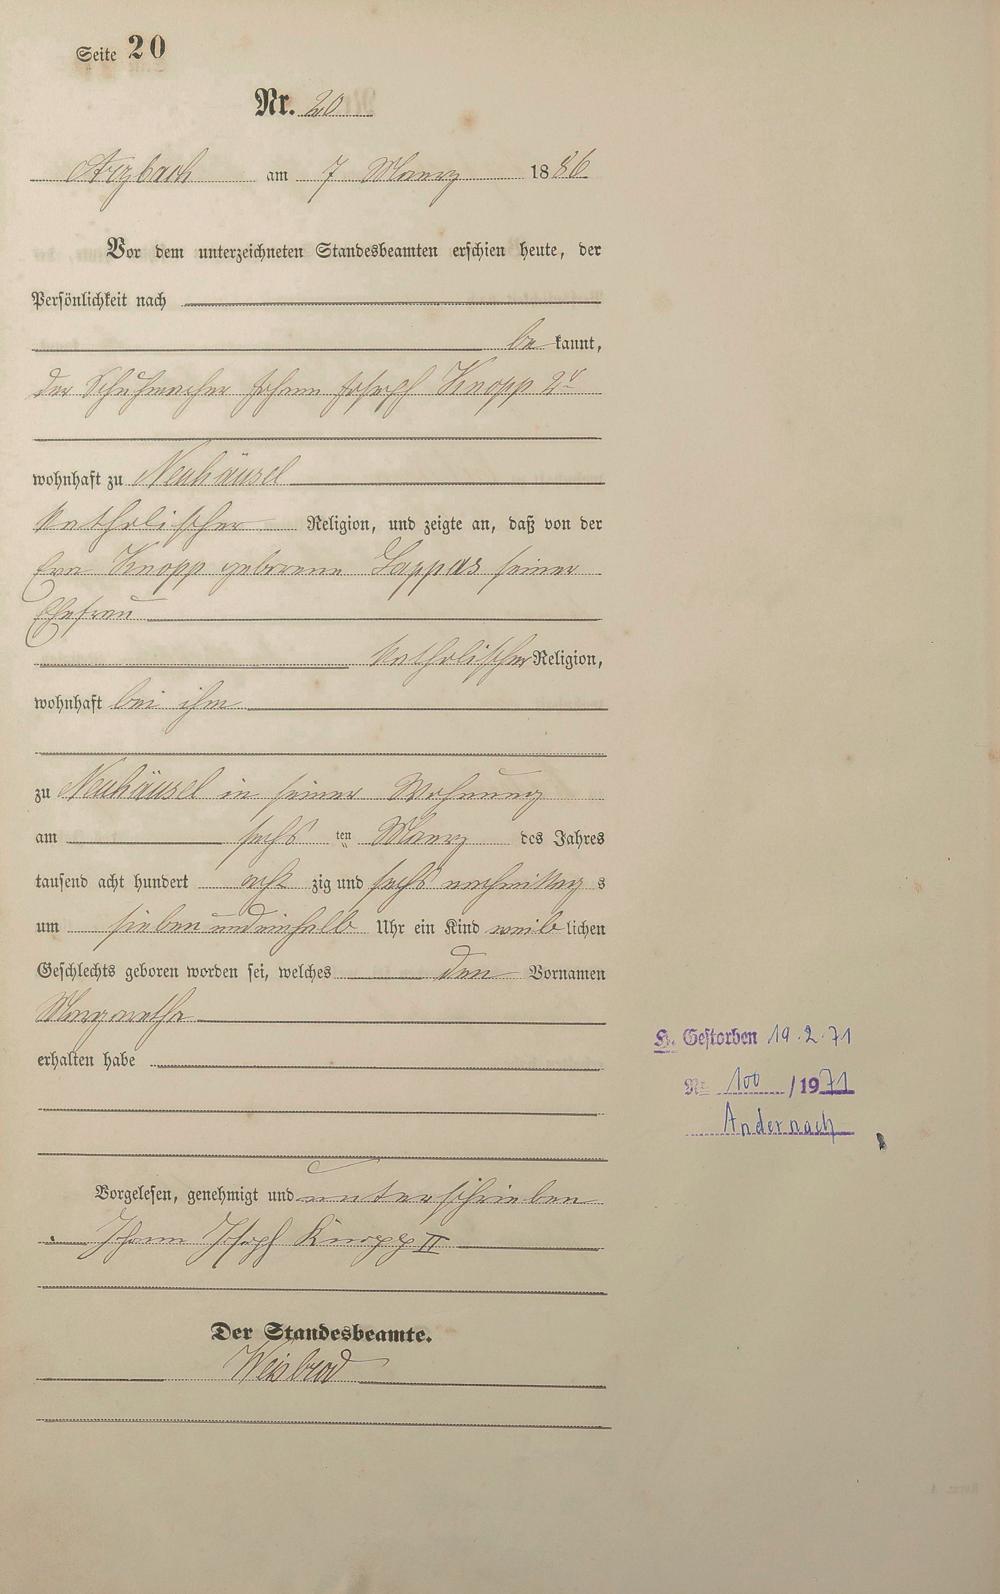 Seite 20
Nr. 20
Arzbach am 7 Maerz 1886
Vor dem unterzeichneten Standesbeamten erschien heute, der
Persönlichkeit nach
be kannt,
der Schuhmacher Johann Joseph Knopp 2r
wohnhaft zu Neuhäusel
katholischer Religion, und zeigte an, daß von der
Eva Knopp geborene Lappas seiner
Ehefrau
katholischer Religion,
wohnhaft bei ihm
zu Neuhäusel in seiner Wohnung
am sechs ten Maerz des Jahres
tausend acht hundert acht zig und sechs nachmittag s
um sieben und einhalb Uhr ein Kind weib lichen
Geschlechts geboren worden sei, welches den Vornamen
Margaretha
erhalten habe
H. Gestorben 19.2.71
Nr 100 / 1971
Andernach
Vorgelesen, genehmigt und unterschrieben
Johann Joseph Knopp II
Der Standesbeamte.
Weisbrod